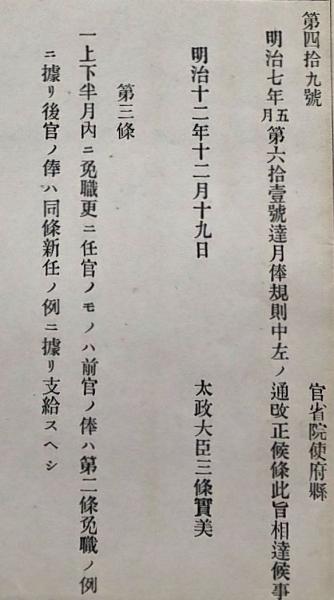 第四拾九號 官省院使府縣
明治七年五月第六拾壹號達月俸規則中左ノ通改正候條此旨相達候事
明治十二年十二月十九日 太政大臣三條實美
第三條
一上下半月內ニ免職更ニ任官ノモノハ前官ノ俸ハ第二條免職ノ例
ニ據リ後官ノ俸ハ同條新任ノ例ニ據リ支給スヘシ